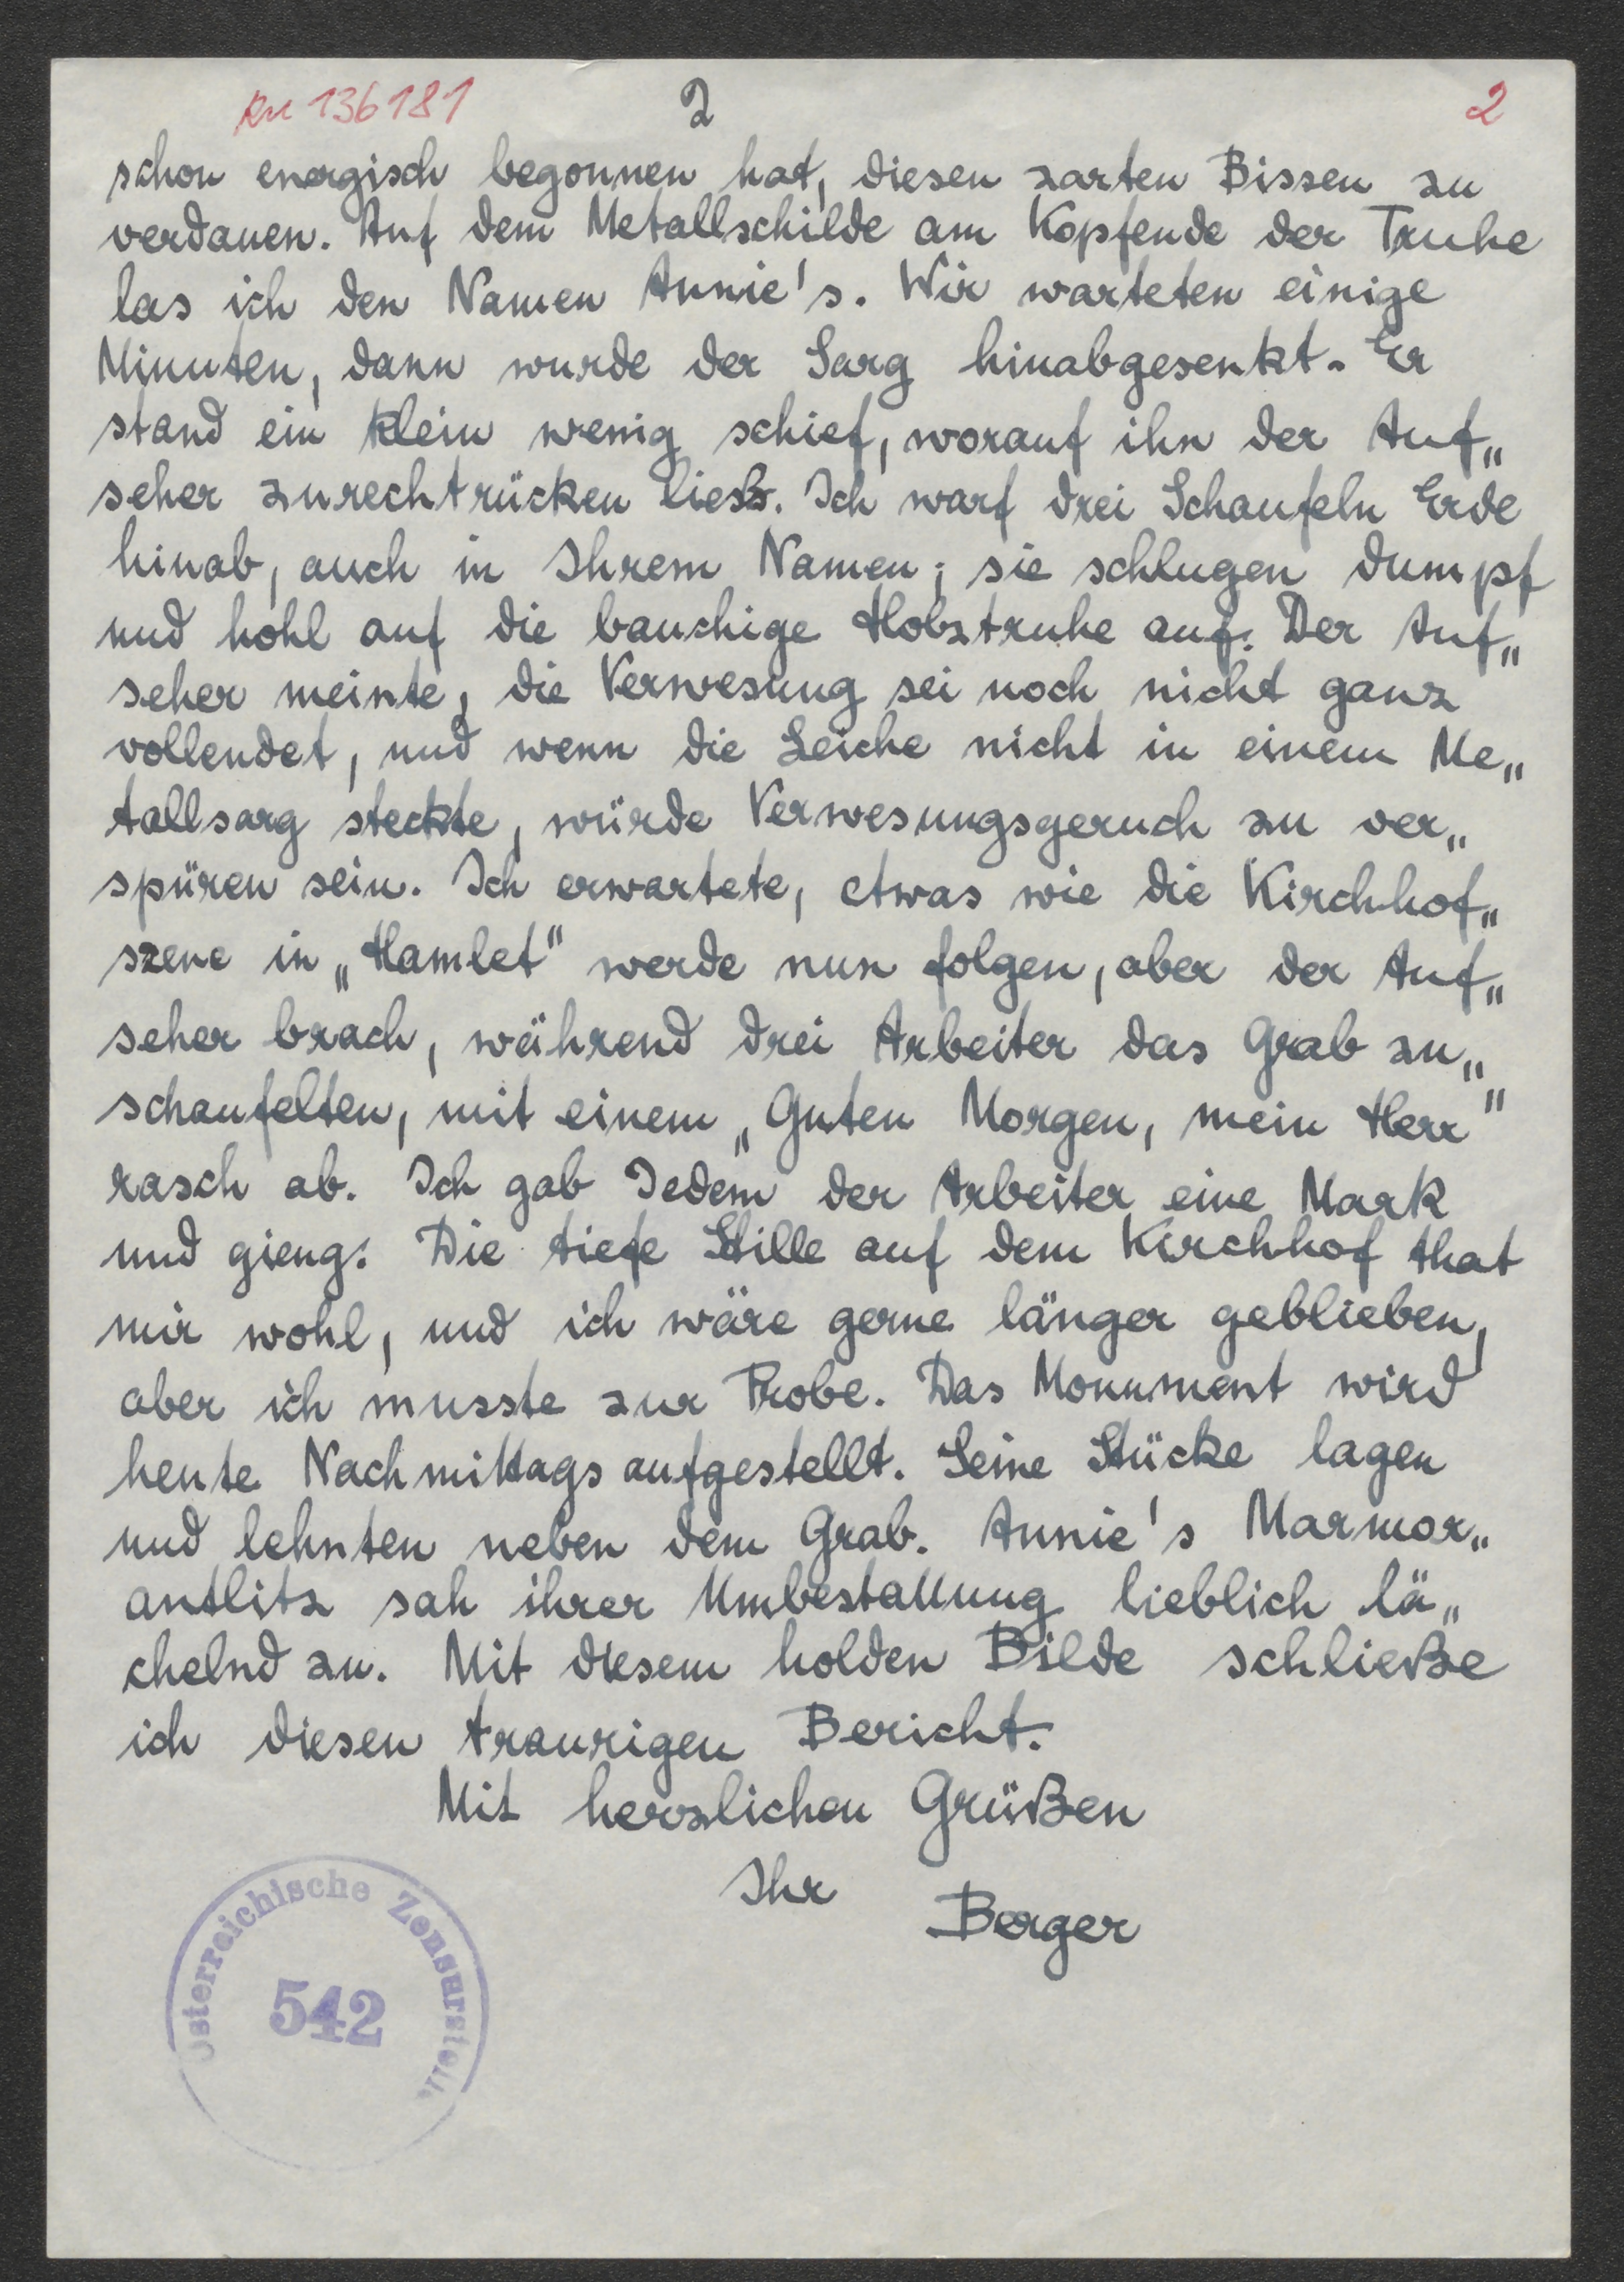 RN 136181
2
2
schon energisch begonnen hat, diesen zarten Bissen zu
verdauen. Auf dem Metallschilde am Kopfende der Truhe
las ich den Namen Annie's. Wir warteten einige
Minuten, dann wurde der Sarg hinabgesenkt. Er
stand ein klein wenig schief, worauf ihn der Auf„
seher zurechtrücken liess. Ich warf drei Schaufeln Erde
hinab, auch in Ihrem Namen; sie schlugen dumpf
und hohl auf die bauchige Holztruhe auf. Der Auf„
seher meinte, die Verwesung sei noch nicht ganz
vollendet, und wenn die Leiche nicht in einem Me„
tallsarg steckte, würde Verwesungsgeruch zu ver„
spüren sein. Ich erwartete, etwas wie die Kirchhof„
szene in „Hamlet" werde nun folgen, aber der Auf„
seher brach, während drei Arbeiter das Grab zu„
schaufelten, mit einem „Guten Morgen, mein Herr"
rasch ab. Ich gab Jedem der Arbeiter eine Mark
und gieng. Die tiefe Stille auf dem Kirchhof that
mir wohl, und ich wäre gerne länger geblieben,
aber ich musste zur Probe. Das Monument wird
heute Nachmittags aufgestellt. Seine Stücke lagen
und lehnten neben dem Grab. Annie's Marmor„
antlitz sah ihrer Umbestattung lieblich lä„
chelnd zu. Mit diesem holden Bilde schließe
ich diesen traurigen Bericht.
Mit herzlichen Grüßen
Ihr Berger
Österreichische Zensurstelle
542